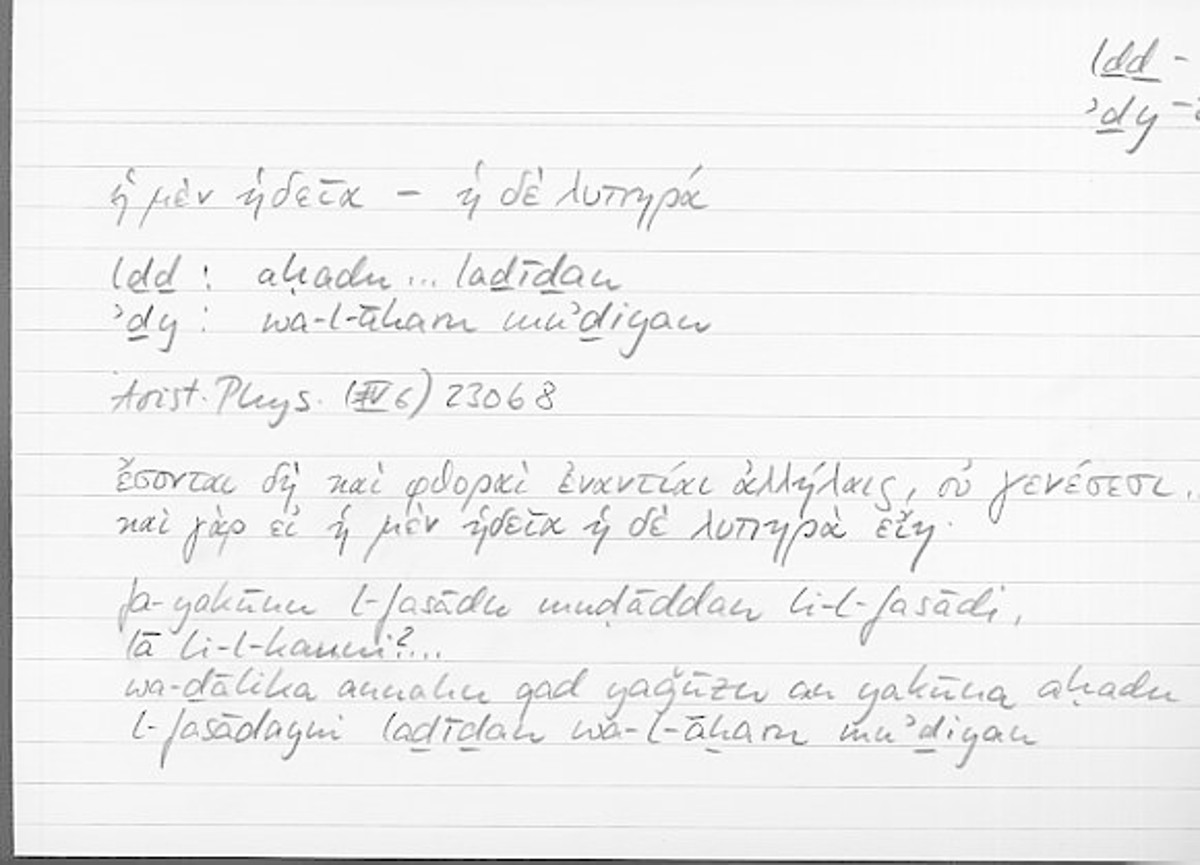 lḏḏ -
ʾḏy -
ἡ μὲν ἡδεῖα – ἡ δὲ λυπηρά
lḏḏ : aḥadu ... laḏīḏan
ʾḏy : wa-l-āḫaru muʾḏiyan
Arist. Phys. (IV 6) 230b8
ἔσονται δὴ καὶ φθοραὶ ἐναντίαι ἀλλήλαις, οὐ γενέσεσι.
καὶ γὰρ εἰ ἡ μὲν ἡδεῖα ἡ δὲ λυπηρὰ εἴη·
fa-yakūnu l-fasādu muḍāddan li-l-fasādi,
lā li-l-kawni?...
wa-ḏālika annahu qad yaǧūzu an yakūna aḥadu
l-fasādayni laḏīḏan wa-l-āḫaru muʾḏiyan